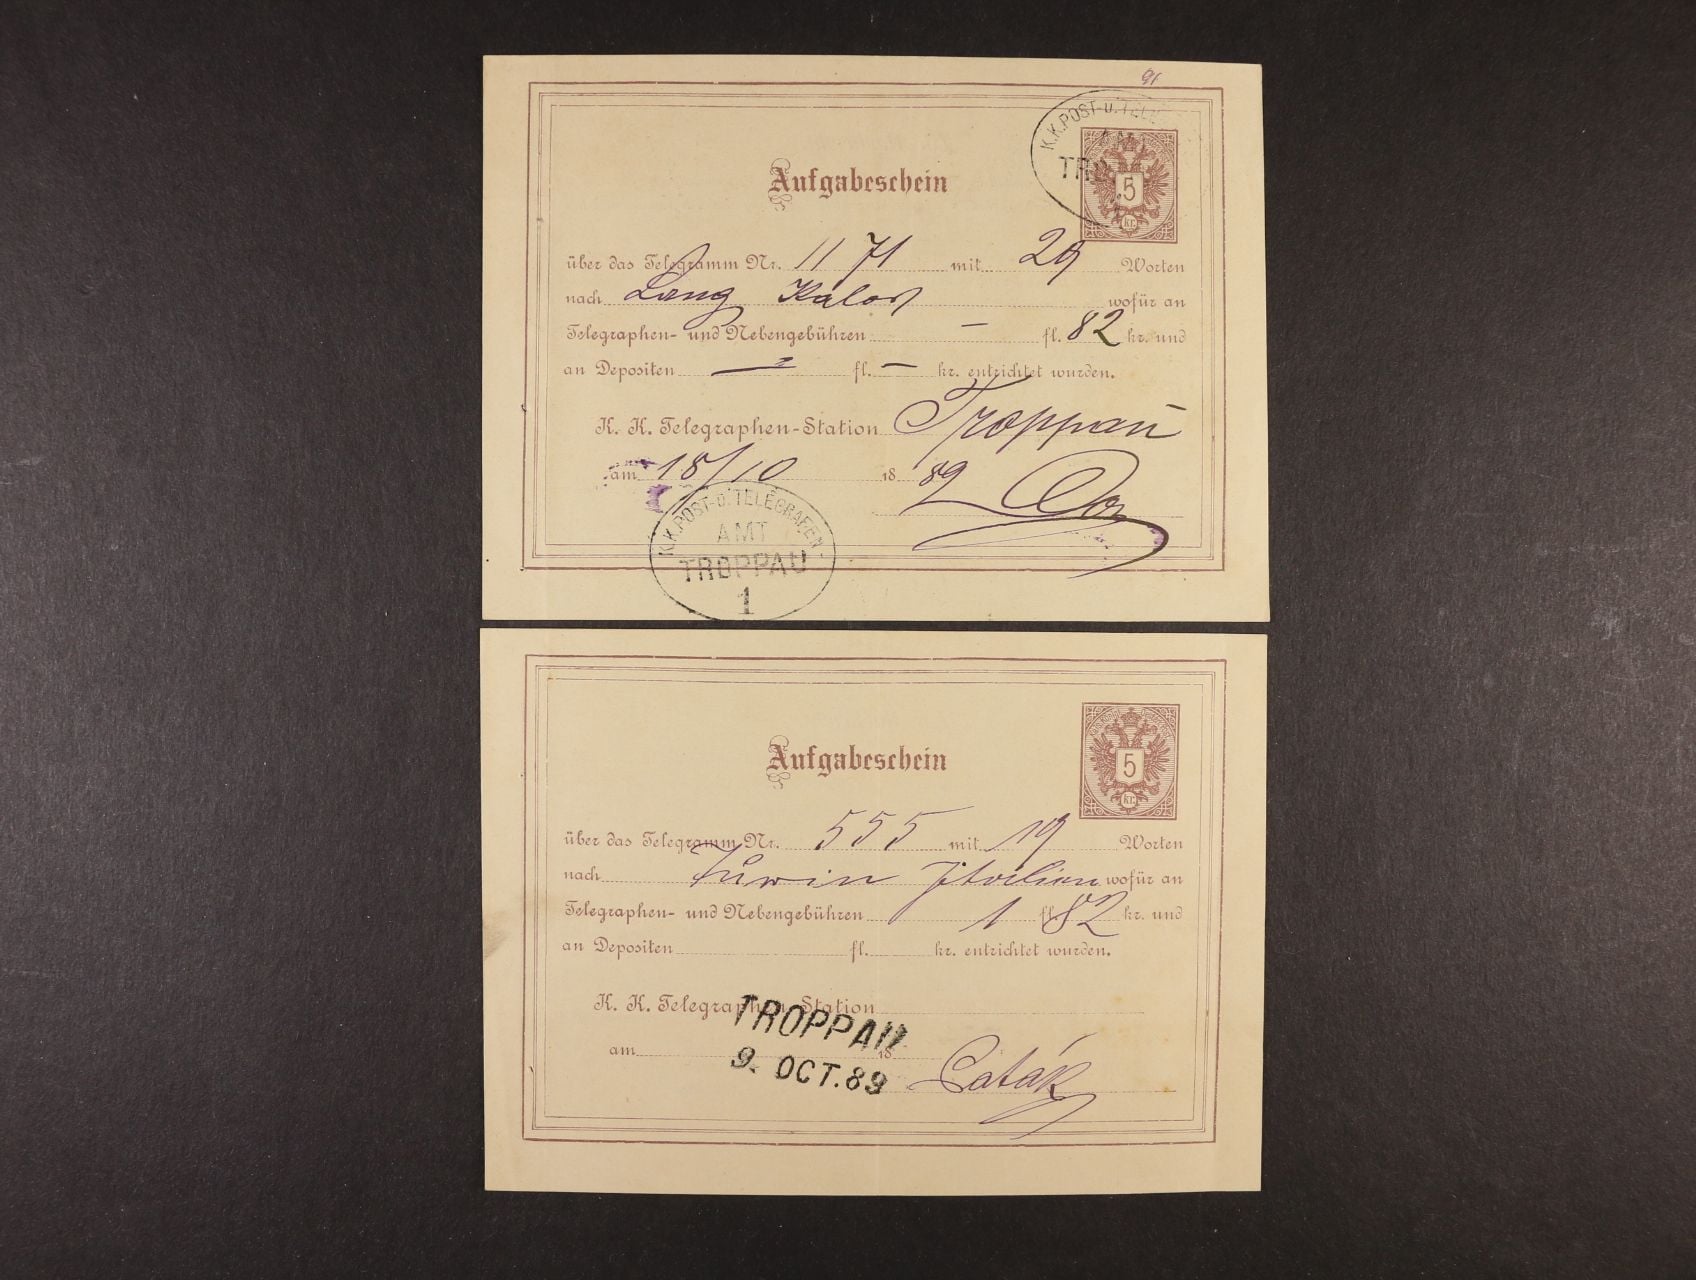 91
K.K.POST-U.TELE
AMT
TRO
5
kr.
Aufgabeschein
über das Telegramm Nr. 1171 mit 29 Worten
nach Lang Kalos wofür an
Telegraphen- und Nebengebühren — fl. 82 kr. und
an Depositen — fl. — kr. entrichtet wurden.
K. K. Telegraphen-Station Troppau
am 18/10 18 89
K.K.POST-U.TELEGRAFEN-
AMT
TROPPAU
1
5
kr.
Aufgabeschein
über das Telegramm Nr. 555 mit 19 Worten
nach Italien wofür an
Telegraphen- und Nebengebühren 1 fl. 82 kr. und
an Depositen fl. kr. entrichtet wurden.
K. K. Telegraphen-Station
TROPPAU
am 18
9. OCT. 89